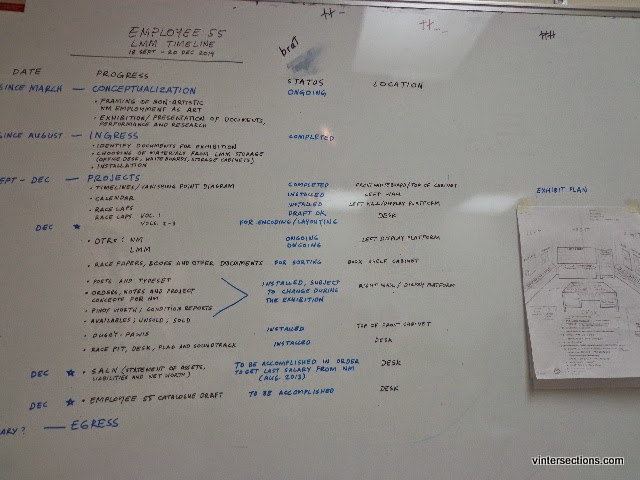 EMPLOYEE 55
LMM TIMELINE
18 SEPT - 20 DEC 2014
brat
DATE PROGRESS STATUS LOCATION
SINCE MARCH — CONCEPTUALIZATION ONGOING
• FRAMING OF NON-ARTISTIC
NM EMPLOYMENT AS ART
• EXHIBITION / PRESENTATION OF DOCUMENTS,
PERFORMANCE AND RESEARCH
SINCE AUGUST — INGRESS COMPLETED
• IDENTIFY DOCUMENTS FOR EXHIBITION
• CHOOSING OF MATERIALS FROM LMM STORAGE
(OFFICE DESK, WHITEBOARDS, STORAGE CABINETS)
• INSTALLATION
SEPT - DEC — PROJECTS
• TIMELINES / VANISHING POINT DIAGRAM COMPLETED FREE WHITEBOARD / TOP OF CABINET
• CALENDAR INSTALLED LEFT WALL
• RACE LAPS INSTALLED LEFT WALL / DISPLAY PLATFORM
RACE LAPS VOL. 1 DRAFT OK DESK
DEC ★ VOLS. 2-3 FOR ENCODING / LAYOUTING
• OTRS: NM ONGOING LEFT DISPLAY PLATFORM
LMM ONGOING
• RACE PAPERS, BOOKS AND OTHER DOCUMENTS FOR SORTING BOOK SHELF CABINET
• POSTS AND TYPESET
• ORDERS, NOTES AND PROJECT
CONCEPTS FOR NM
• PINOY WORTH; CONDITION REPORTS
• AVAILABLE; UNSOLD; SOLD
INSTALLED, SUBJECT
TO CHANGE DURING
THE EXHIBITION
RIGHT WALL / DISPLAY PLATFORM
INSTALLED TOP OF FRONT CABINET
• RACE PIT, DESK, FLAG AND SOUNDTRACK INSTALLED DESK
DEC ★ • SALN (STATEMENT OF ASSETS,
LIABILITIES AND NET WORTH)
TO BE ACCOMPLISHED IN ORDER
TO GET LAST SALARY FROM NM
(AUG. 2013)
DESK
DEC ★ • EMPLOYEE 55 CATALOGUE DRAFT TO BE ACCOMPLISHED DESK
ARY? — EGRESS
EXHIBIT PLAN
vintersections.com